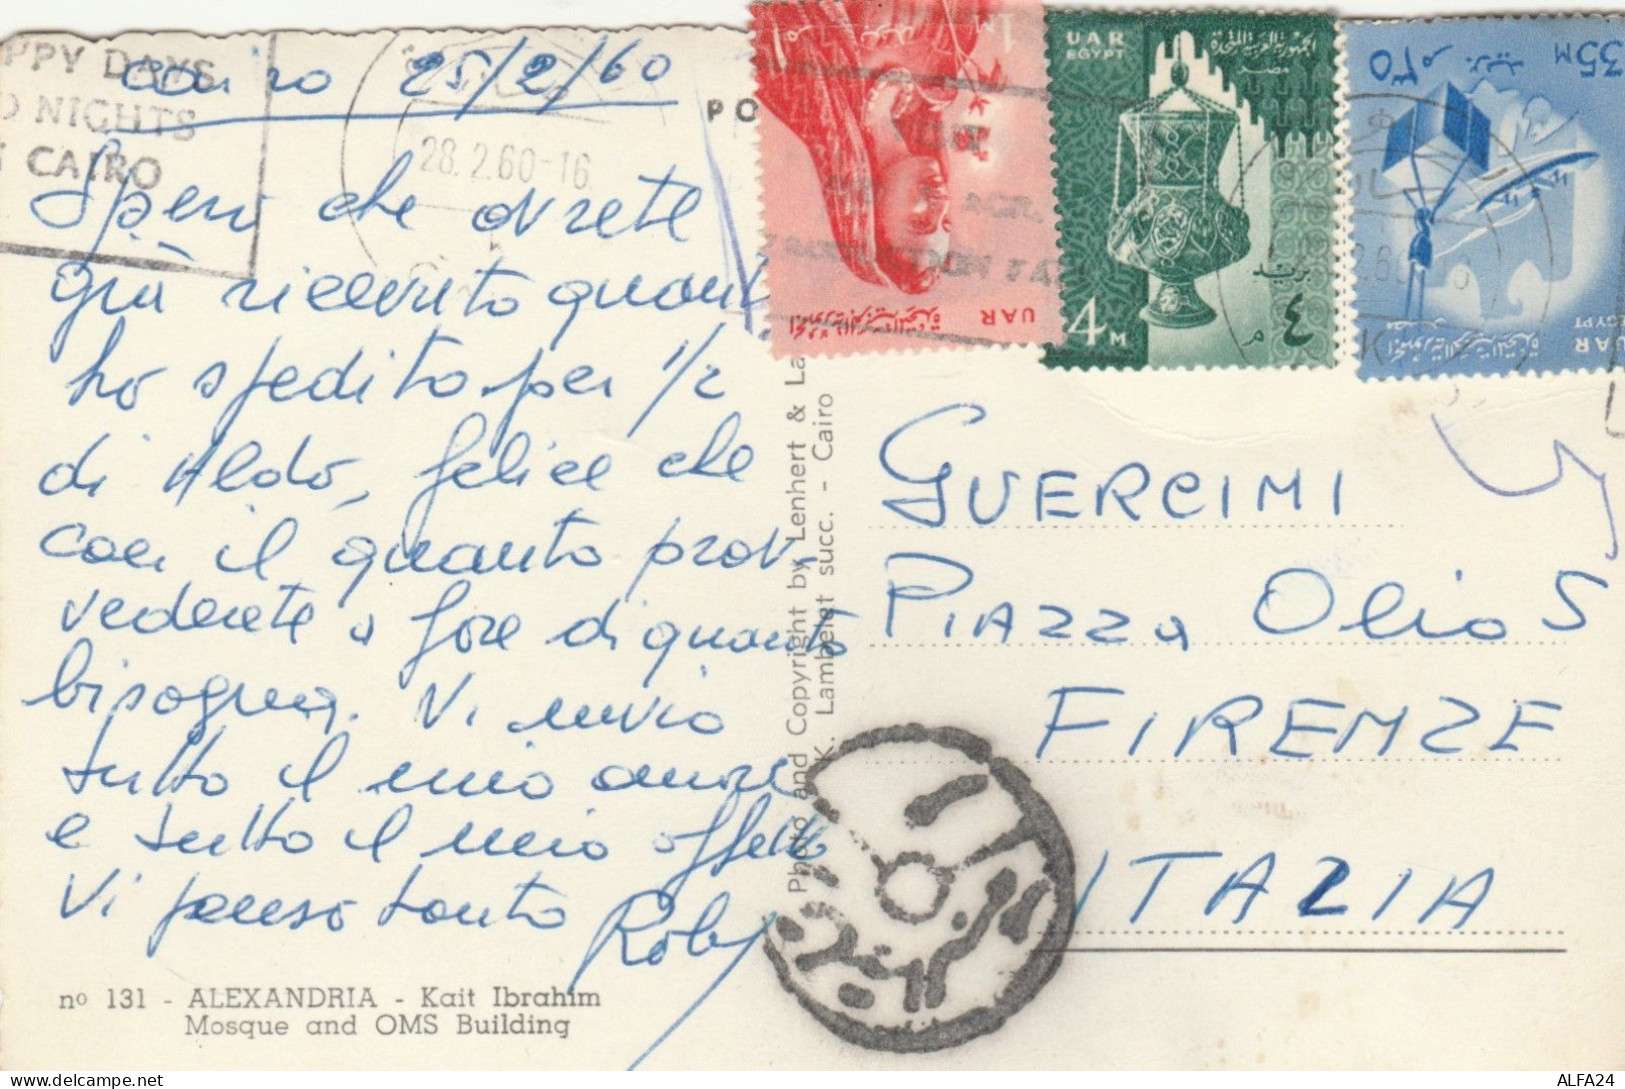 PPY DAYS
D NIGHTS
CAIRO
Cairo 25/2/60
28.2.60-16
PO
1M
UAR
UAR
EGYPT
الجمهورية العربية المتحدة
مصر
بريد
4M
٤ م
35M
٣٥ م بريد
UAR
EGYPT
Spero che avrete
già ricevuto quanto
ho spedito per 1/2
di Aldo, felice che
con il quanto prov-
vederete a fare di quanto
bisogna. Vi invio
tutto il mio amore
e tutto il mio affetto
Vi penso tanto
Roby
GUERCINI
PIAZZA Olio 5
FIRENZE
ITALIA
Photo and Copyright by Lenhert & La
K. Lambelet succ. - Cairo
nº 131 - ALEXANDRIA - Kait Ibrahim
Mosque and OMS Building
ALFA24